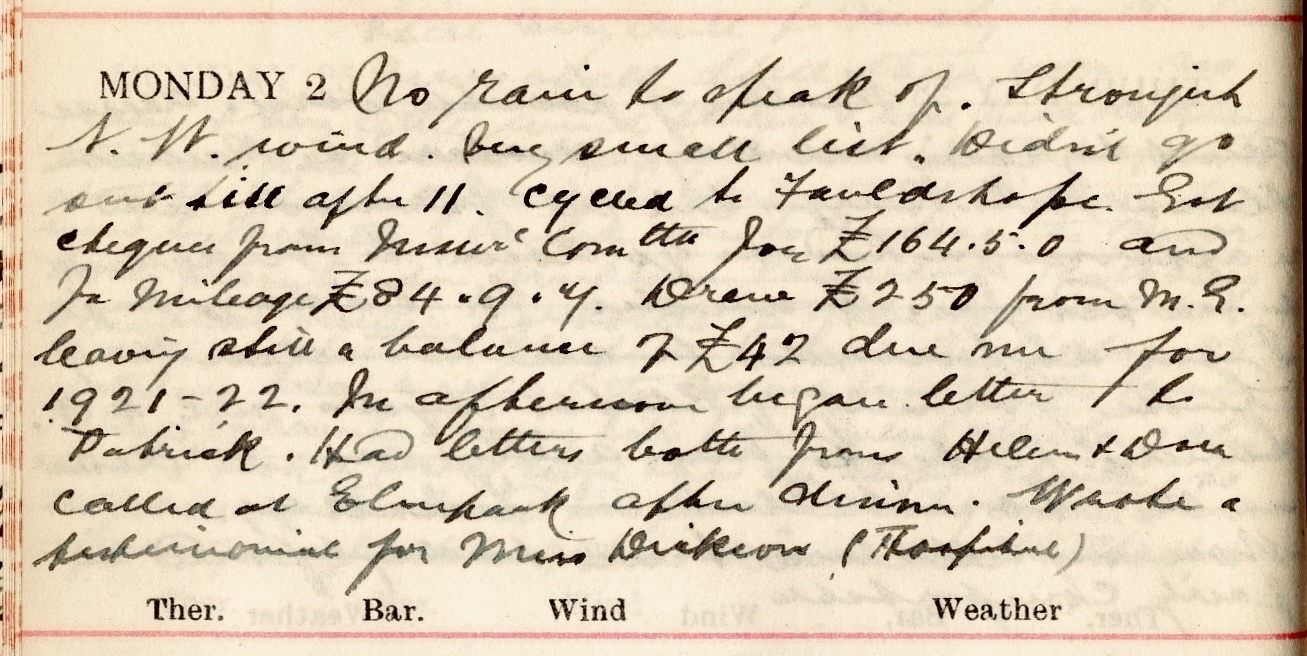 MONDAY 2 No rain to speak of. Strongish
N. W. wind. Very small list. Didn't go
out till after 11. Cycled to Fauldshope. Got
cheque from Insur' Comttee for £164.5.0 and
for Mileage £84.9.4. Drew £250 from M.E.
leaving still a balance of £42 due me for
1921-22. In afternoon began letter to
Patrick. Had letters both from Helen & Dora
Called at Elmpark after dinner. Wrote a
testimonial for Miss Dickson (Hospital)
Ther. Bar. Wind Weather